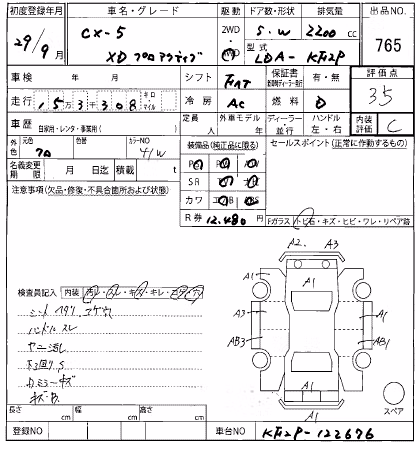 初度登録年月 車名・グレード 駆動 ドア数・形状 排気量 出品NO.
29/9月 CX-5 XD プロアクティブ 2WD S.W 2200cc 765
型式 LDA-KF2P
車検 年 月 シフト FAT 保証書 有・無 評価点
走行 15万3千308 キロ マイル 冷房 AC 燃料 D 35
車歴 自家用・レンタ・事業用( ) 定員 人 外車モデル 年 ディーラー・並行 ハンドル 左・右 内装評価 C
外色 元色 色替 カラーNO 41W
装備品(純正品に限る) セールスポイント(正常に作動するもの)
名義変更期限 月 日迄 積載 t
SR
注意事項(欠品・修復・不具合箇所および状態)
カワ
R券 12,480
Fガラス トビ石・キズ・ヒビ・ワレ・リペア跡
A2. A3
A1 A1 A1
検査員記入 内装 汚レ・スレ・キズ・キレ・コゲ・穴
シートスタリ コゲ穴
ハンドルスレ
ヤニ汚し
下回りS
A3 A1 A1
AB3 AB1
A1
A1
スペア
長さ cm 幅 cm 高さ cm
登録NO 車台NO KF2P-122676